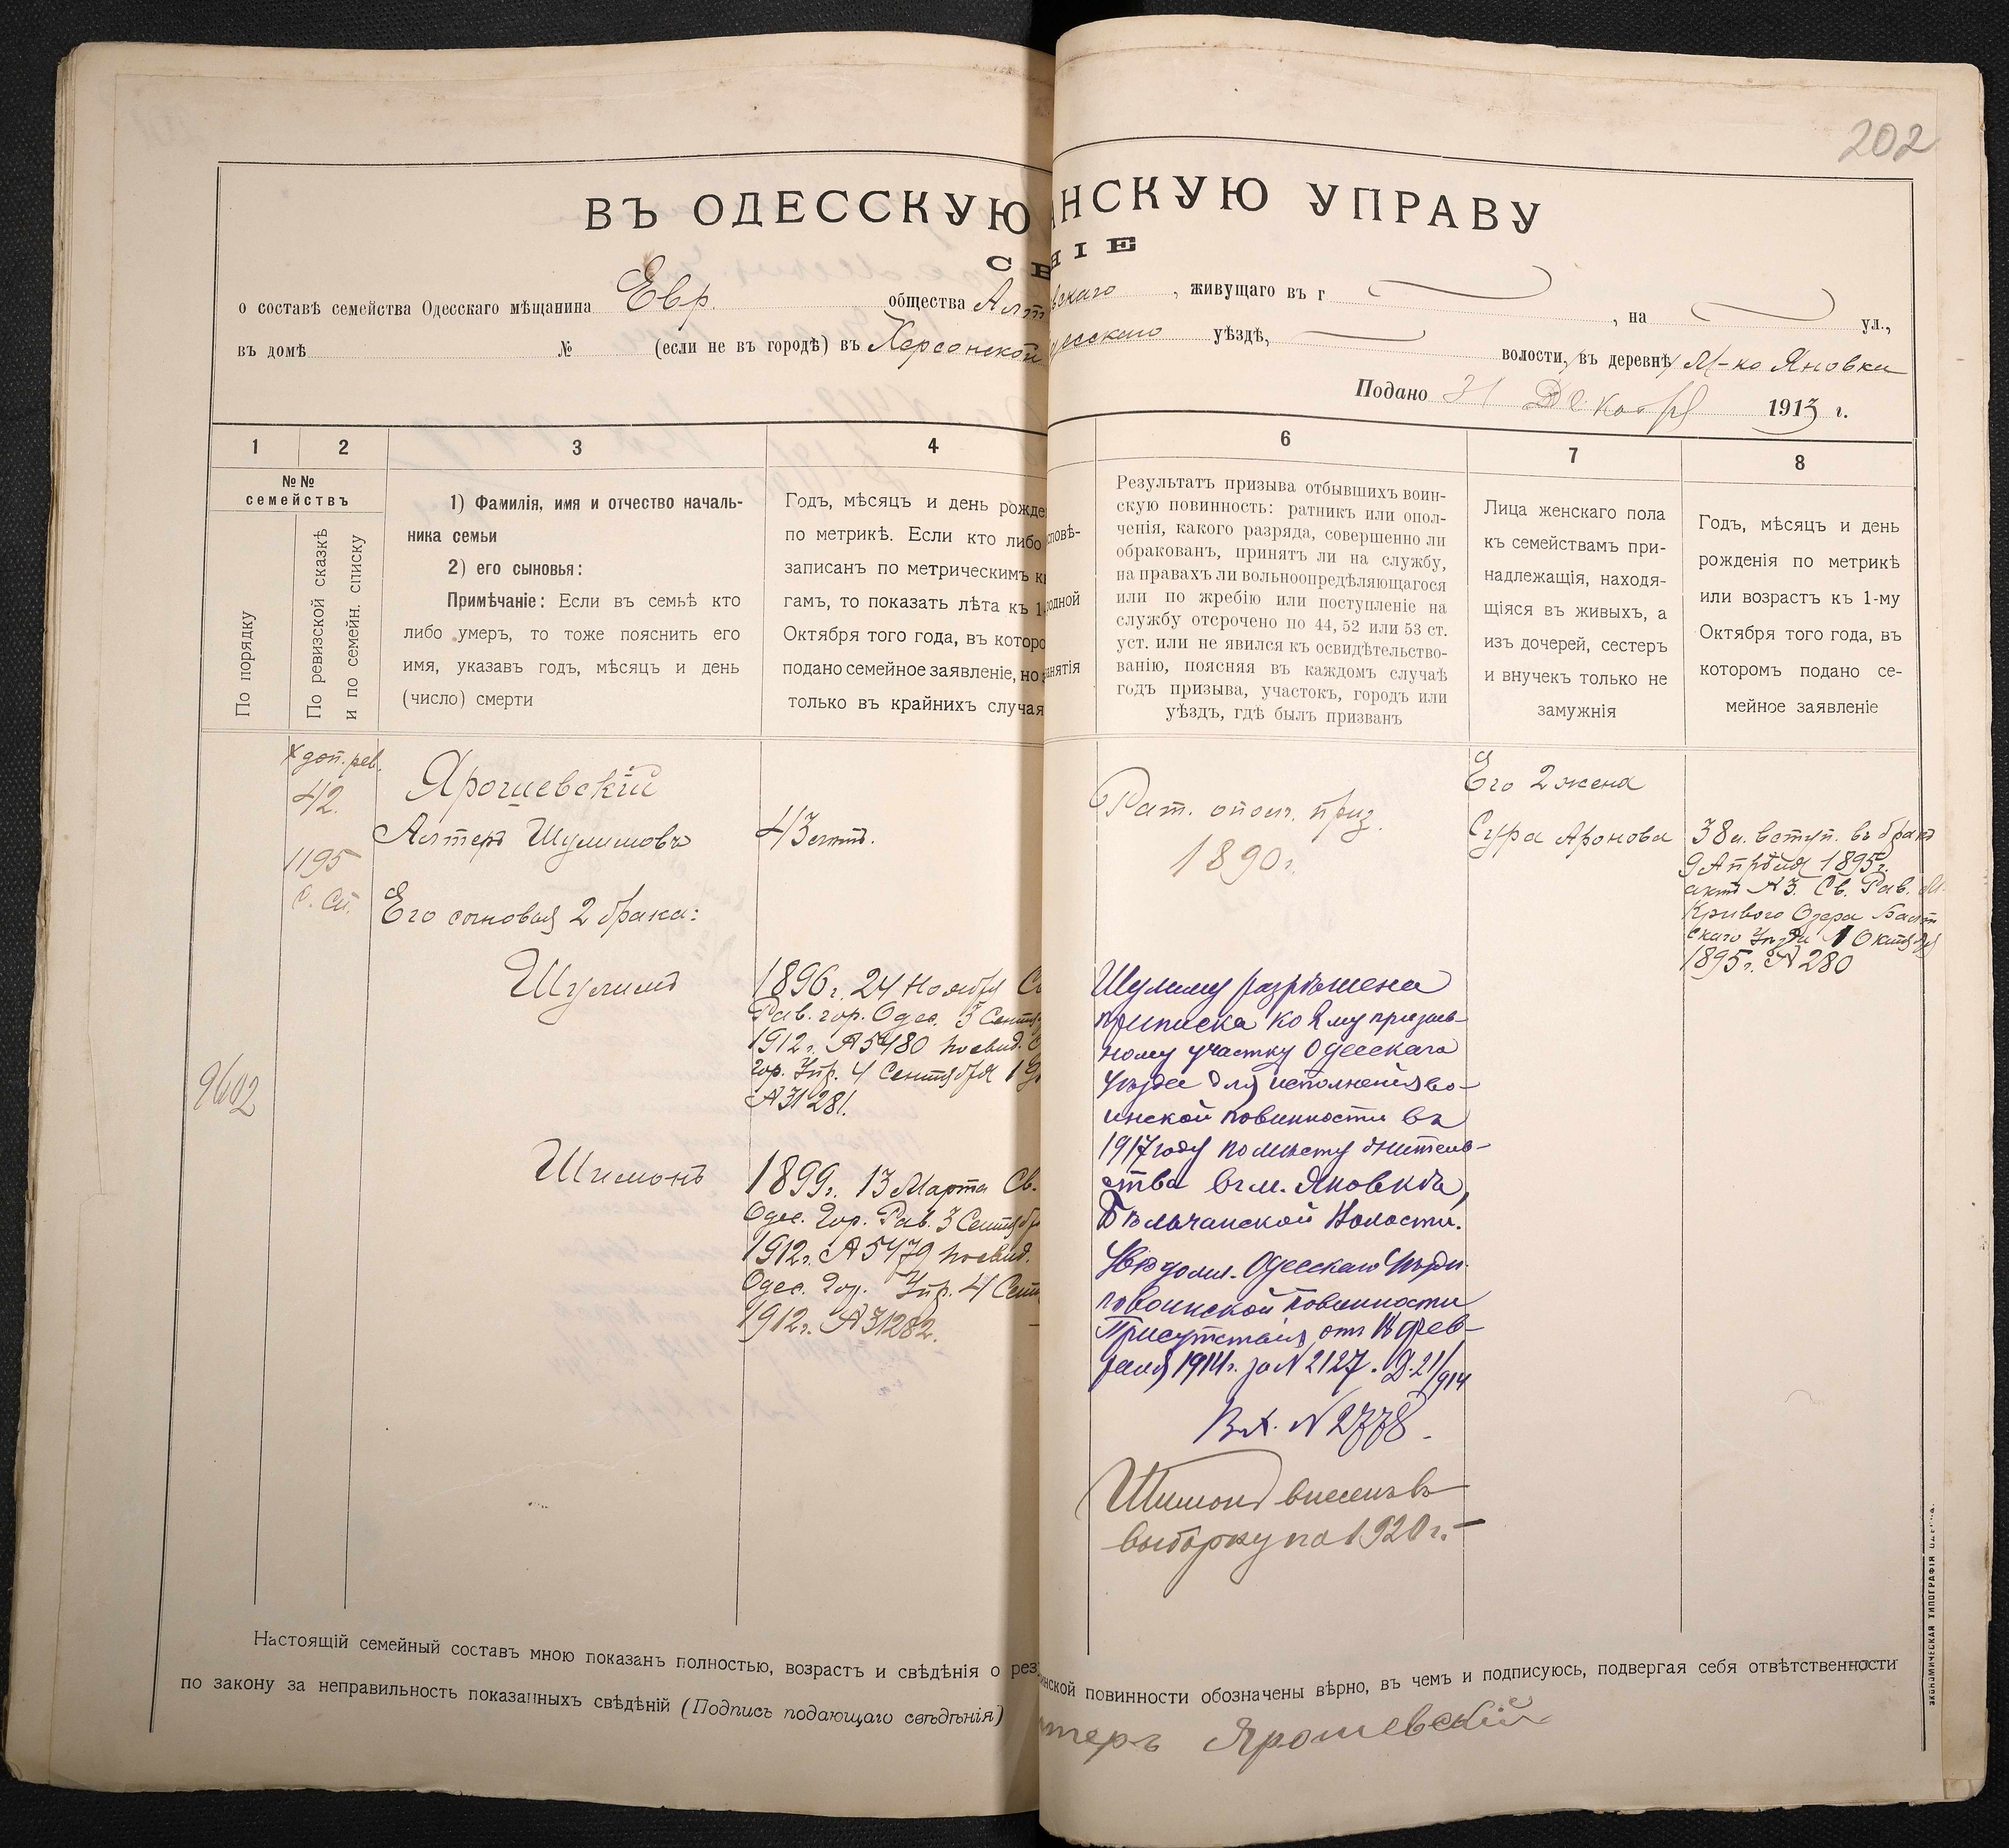 202
ВЪ ОДЕССКУЮ НСКУЮ УПРАВУ
СВ НІЕ
о составѣ семейства Одесскаго мѣщанина Евр. общества Алт вскаго, живущаго въ г , на ул.,
въ домѣ № (если не въ городѣ) въ Херсонской десскаго уѣздѣ, волости, въ деревнѣ М-ко Яновка
Подано 31 Декабр 1913 г.
1 2 3 4 6 7 8
№№ семействъ
По порядку
По ревизской сказкѣ
и по семейн. списку
1) Фамилія, имя и отчество началь-
ника семьи
2) его сыновья:
Примѣчаніе: Если въ семьѣ кто
либо умеръ, то тоже пояснить его
имя, указавъ годъ, мѣсяцъ и день
(число) смерти
Годъ, мѣсяцъ и день рожде
по метрикѣ. Если кто либо
записанъ по метрическимъ к
гамъ, то показать лѣта къ 1
Октября того года, въ которо
подано семейное заявленіе, но
только въ крайнихъ случая
сповѣ-
родной
анятія
Результатъ призыва отбывшихъ воин-
скую повинность: ратникъ или опол-
ченія, какого разряда, совершенно ли
обракованъ, принятъ ли на службу,
на правахъ ли вольноопредѣляющагося
или по жребію или поступленіе на
службу отсрочено по 44, 52 или 53 ст.
уст. или не явился къ освидѣтельство-
ванію, поясняя въ каждомъ случаѣ
годъ призыва, участокъ, городъ или
уѣздъ, гдѣ былъ призванъ
Лица женскаго пола
къ семействамъ при-
надлежащія, находя-
щіяся въ живыхъ, а
изъ дочерей, сестеръ
и внучекъ только не
замужнія
Годъ, мѣсяцъ и день
рожденія по метрикѣ
или возрастъ къ 1-му
Октября того года, въ
которомъ подано се-
мейное заявленіе
доп. рев.
42.
1195
с. сп.
9602
Ярошевскій
Алтеръ Шулимовъ
Его сыновья 2 брака:
Шулимъ
Шимонъ
43 лѣтъ.
1896 г. 24 Ноября Св
Рав. гор. Одес. 3 Сентя
1912 г. № 5480 и свид.
Гор. Упр. 4 Сентября 1
№ 31281.
1899 г. 13 Марта Св.
Одес. Гор. Рав. 3 Сентябр
1912 г. № 5479 и свид.
Одес. Гор. Упр. 4 Сент
1912 г. № 31282.
Рат. опол. приз.
1890 г.
Шулиму разрѣшена
приписка ко му призыв-
ному участку Одесскаго
уѣзда для исполненія во-
инской повинности въ
1917 году по мѣсту житель-
ства въ м. Яновкѣ,
Бѣльчанской Волости.
Увѣдомл. Одесскаго Уѣздн.
по воинской повинности
Присутствія отъ 18 Фев-
раля 1914 г. за № 2127. Д. 21/914
Вх. № 2778.
Шимонъ внесенъ въ
выборку на 1920 г.
Его 2 жена
Сура Аронова
38 л. вступ. въ бракъ
9 Апрѣля 1895 г.
актъ № 3. Св. Рав. м.
Кривого Озера Балт
скаго Уѣзда 10 Октября
1895 г. № 280
Настоящій семейный составъ мною показанъ полностью, возрастъ и свѣдѣнія о рез инской повинности обозначены вѣрно, въ чемъ и подписуюсь, подвергая себя отвѣтственности
по закону за неправильность показанныхъ свѣдѣній (Подпись подающаго свѣдѣнія) теръ Ярошевскій
ЭКОНОМИЧЕСКАЯ ТИПОГРАФІЯ ОДЕССА.